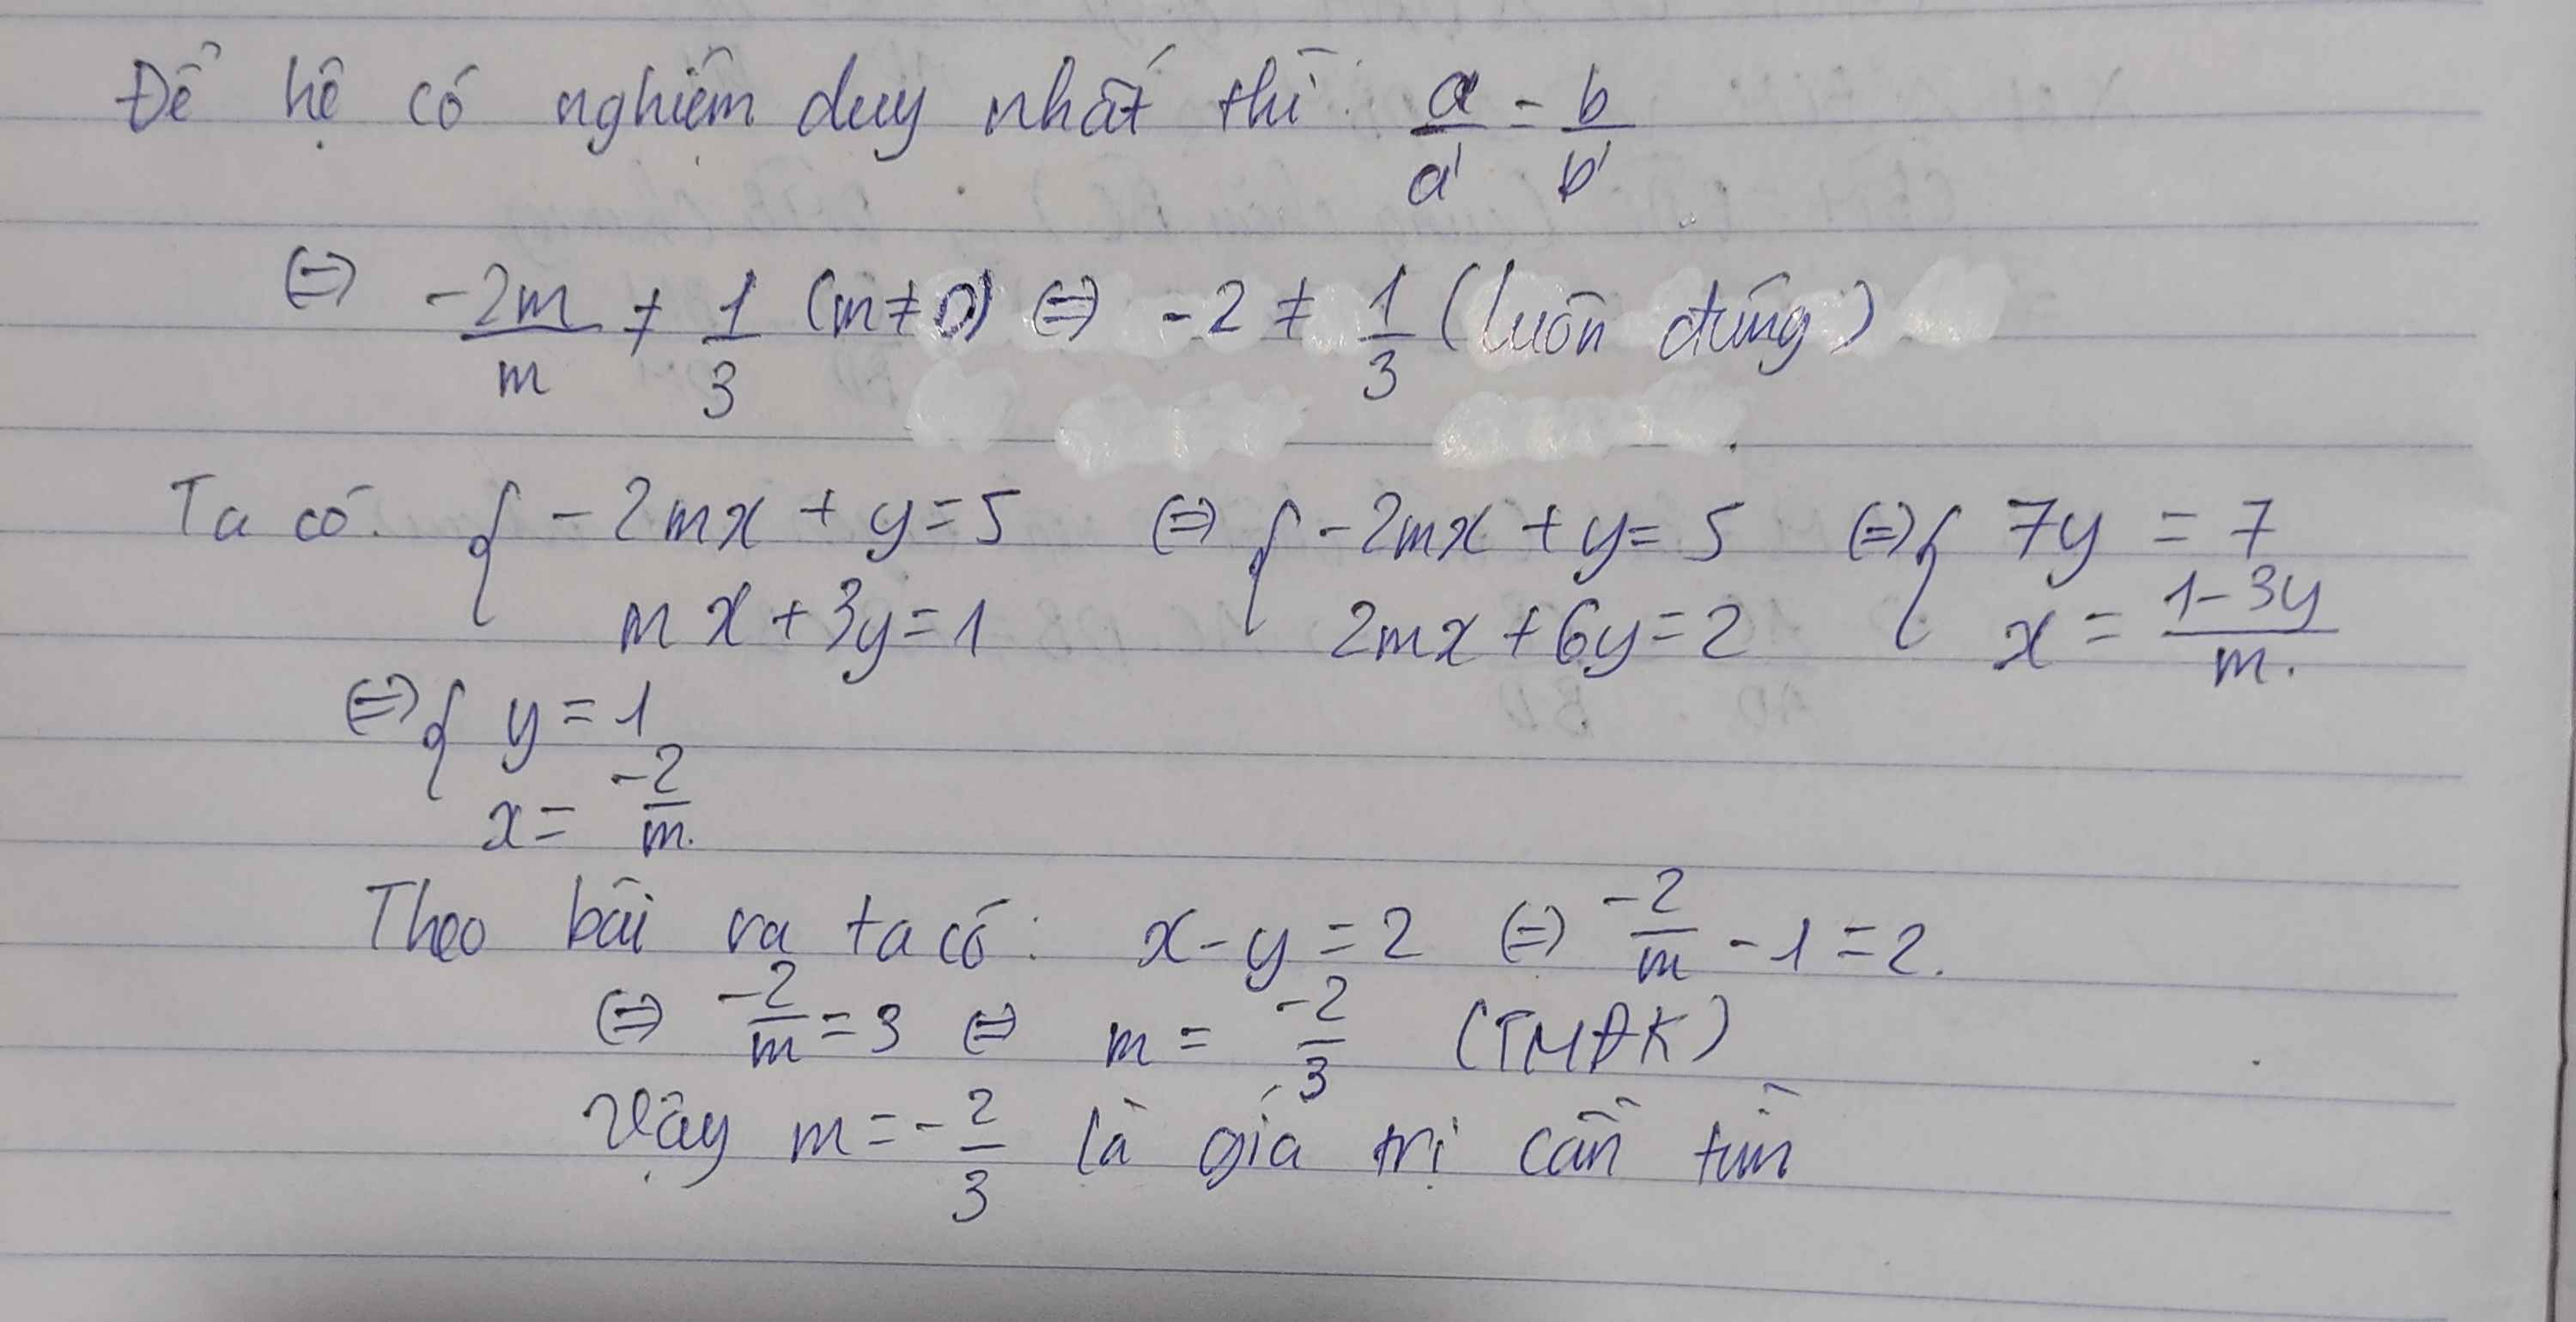 Để hệ có nghiệm duy nhất thì: a/a' = b/b'
⇔ -2m/m ≠ 1/3 (m≠0) ⇔ -2 ≠ 1/3 (luôn đúng)
Ta có: { -2mx + y = 5 ⇔ { -2mx + y = 5 ⇔ { 7y = 7
mx + 3y = 1 2mx + 6y = 2 x = (1-3y)/m.
⇔ { y = 1
x = -2/m.
Theo bài ra ta có: x - y = 2 ⇔ -2/m - 1 = 2.
⇔ -2/m = 3 ⇔ m = -2/3 (TMĐK)
Vậy m = -2/3 là giá trị cần tìm